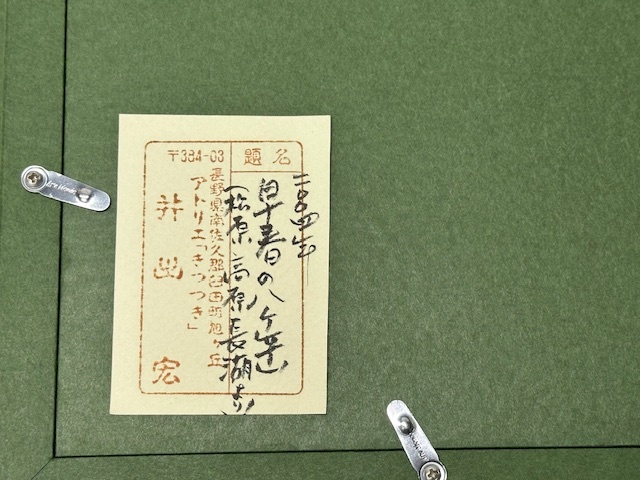 題名
二〇〇四年
早春の八ヶ岳
(松原高原長湖より)
〒384-03
長野県南佐久郡臼田町旭ヶ丘
アトリエ「きつつき」
井出 宏